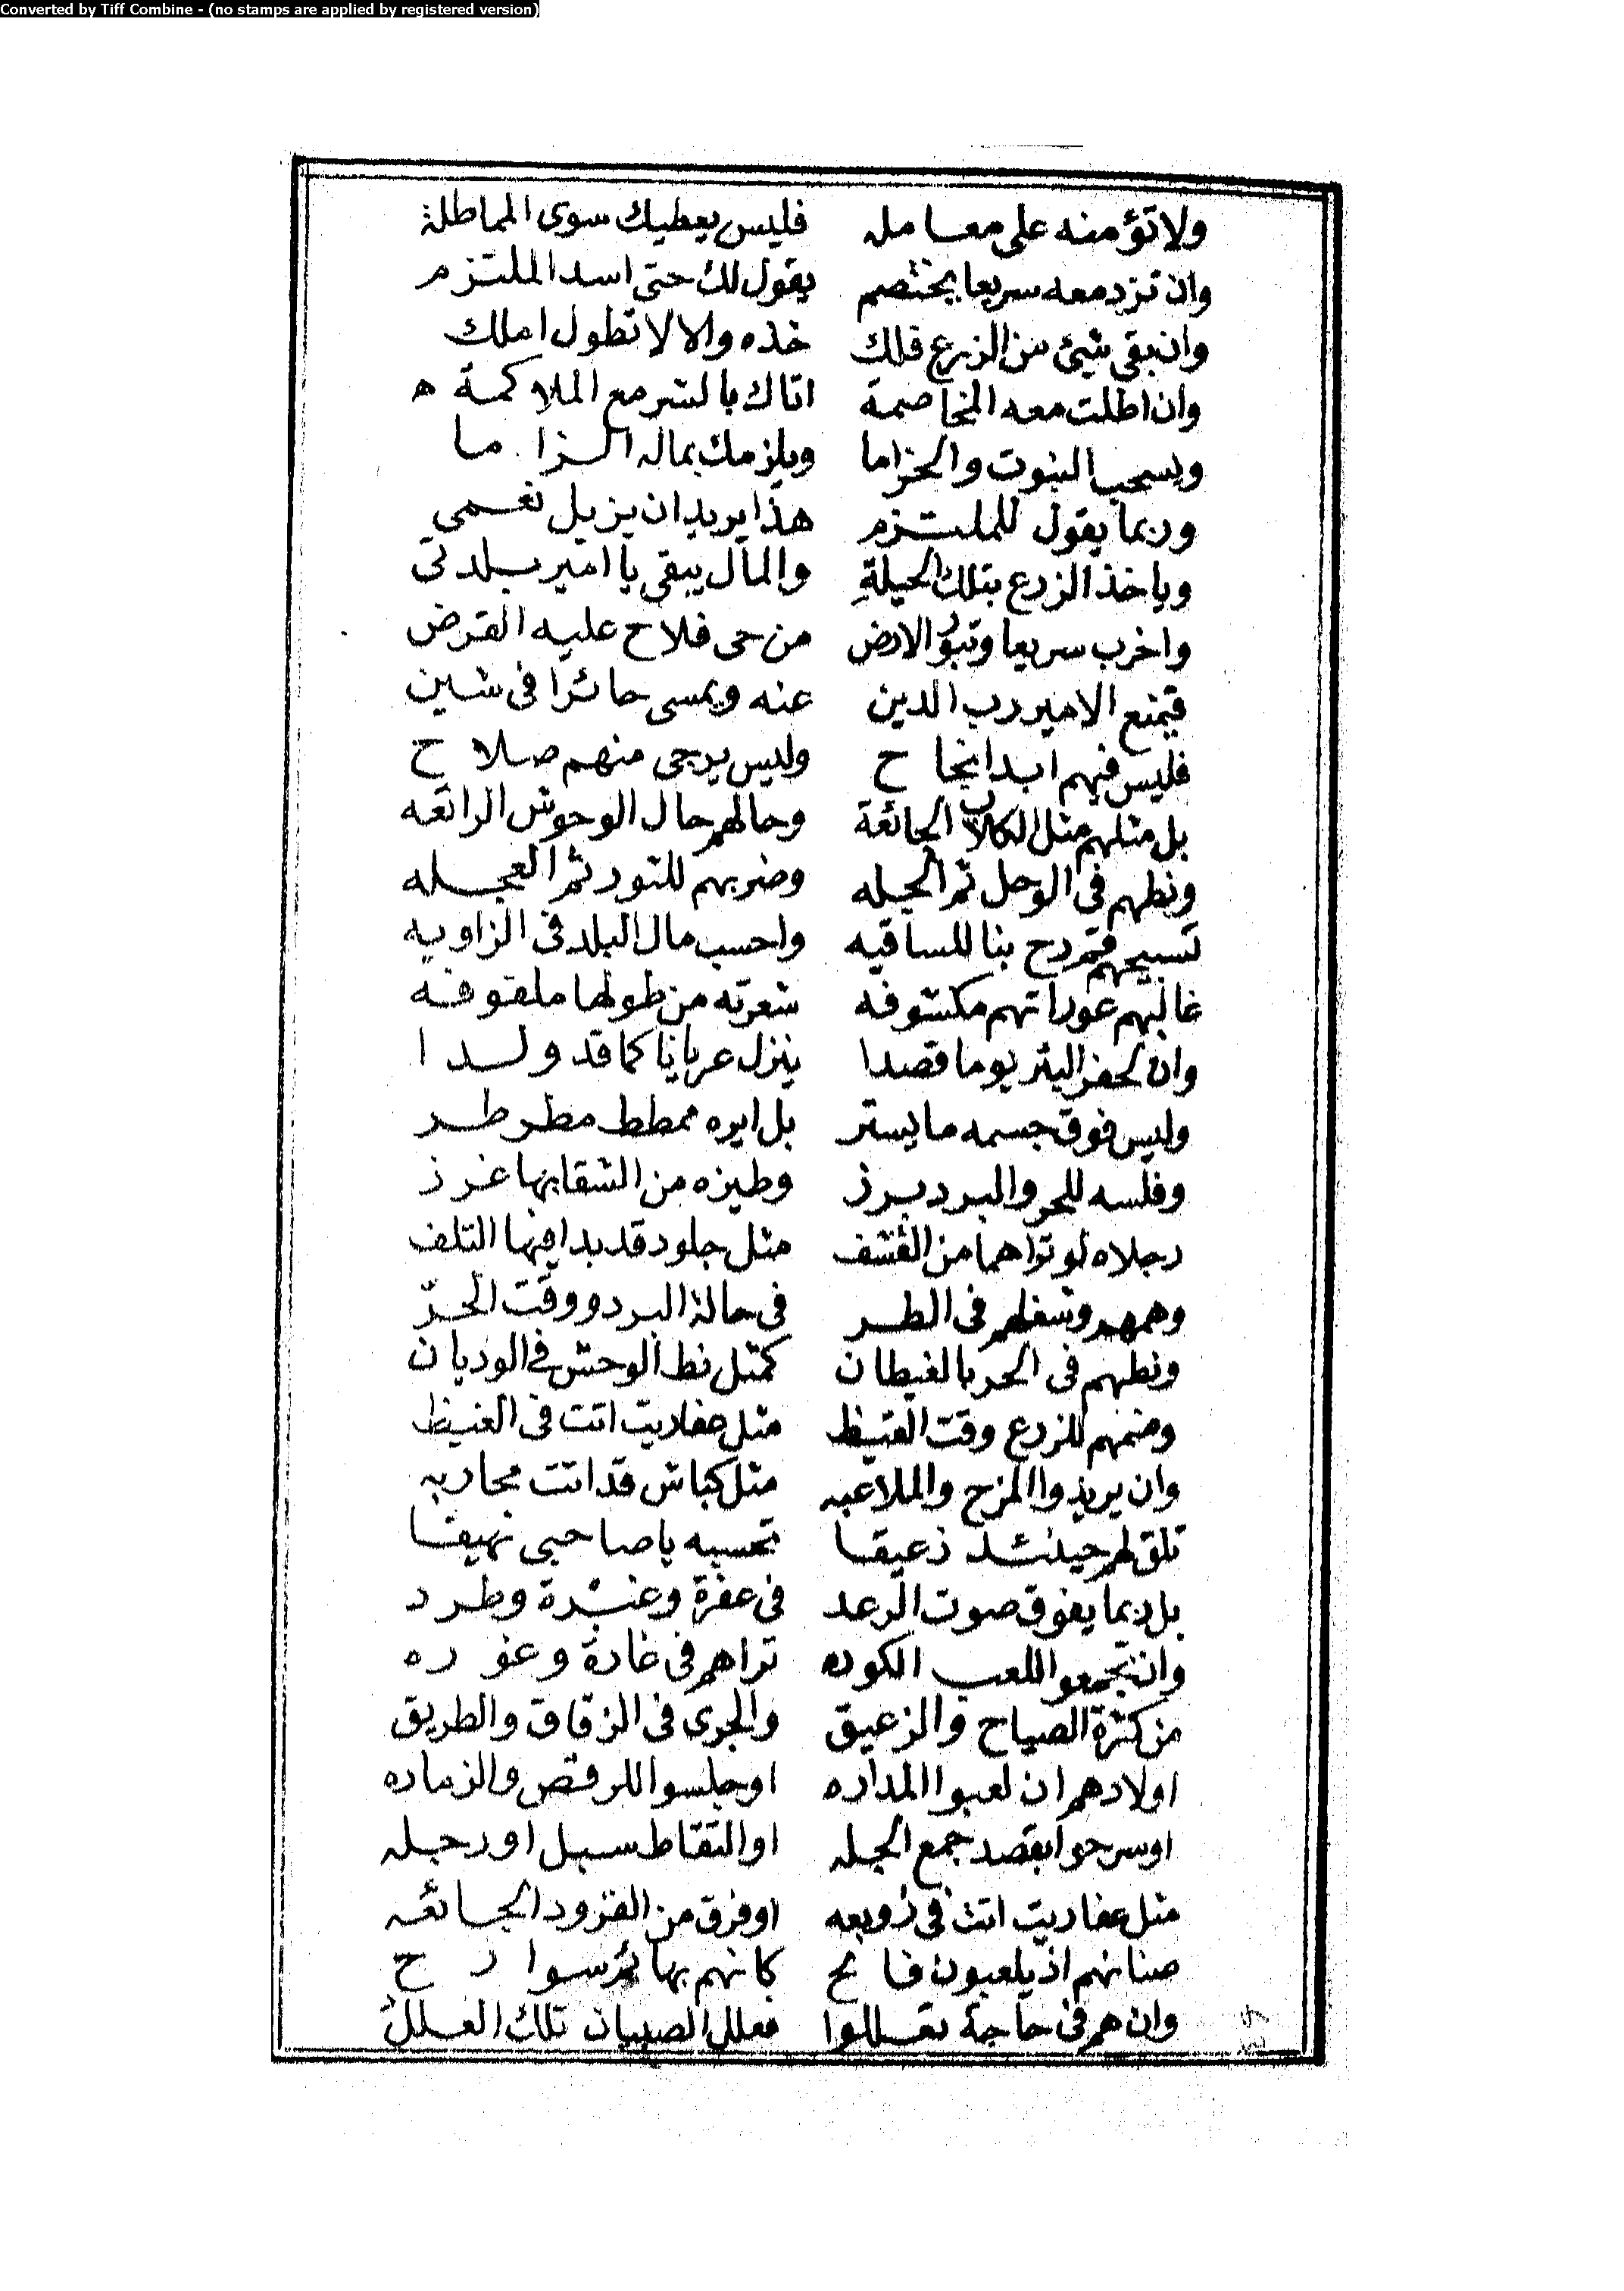 Converted by Tiff Combine - (no stamps are applied by registered version)
ولا تؤمنه على معامله فليس يعطيك سوى المماطلة
وان ترد معه سريعا يختصم يقول لك حتى اسد الملتزم
وان بقى شيئ من الزرع فلك خذه والا لا تطول املك
وان اطلت معه المخاصمة اتاك بالشر مع الملاكمة ه
ويسحب النبوت والحزاما ويلزمك بماله الزاما
وربما يقول للملتزم هذا يريد ان يزيل نعمي
وياخذ الزرع بتلك الحيلةِ والمال يبقى يا امير بلدتي
واخرب سريعا وتبوُر الارض من حى فلاح عليه القرض
فيمنع الامير رب الدين عنه ويمسى حائرا فى شين
فليس فيهم ابدا نجاح وليس يرجى منهم صلاح
بل مثلهم مثل الكلاب الجائعة وحالهم حال الوحوش الراتعه
ونطهم فى الوحل ثم الجله وضربهم للتور ثم العجله
تسبيحهم فتمرح بنا للساقيه واحسب مال البلد فى الزاويه
غالبهم عوراتهم مكشوفه شعرته من طولها ملفوفه
وان لحفر البئر يوما قصدا ينزل عريانا كما قد ولدا
وليس فوق جسمه ما يستر بل ايره ممطط مطرطر
وفلسه للحر والبرد برز وطيزه من الشقا بها غرز
رجلاه لو تراهما من القشف مثل جلود قد بدا فيها التلف
وهمهم وشغلهم فى الطر فى حالة البرد ووقت الحرّ
ونطهم فى الحر بالغيطان كمثل نط الوحش فى الوديان
وضمهم للزرع وقت القيظ مثل عفاريت اتت فى الغيظ
وان يريدوا المزح والملاعبه مثل كباش قد اتت محاربه
تلق لهم حينئذ زعيقا تحسبه يا صاحبى نهيقا
بل ربما يفوق صوت الرعد فى عفرة وغبرة وطرد
وان تجمعوا للعب الكوره تراهم فى غارة وعوره
من كثرة الصياح والزعيق والجرى فى الزقاق والطريق
اولادهم ان لعبوا المداره او جلسوا للرقص والزماره
او سرحوا بقصد جمع الجله او التقاط سبل او رجله
مثل عفاريت اتت فى زوبعه او فرق من القرود الجائعه
صنانهم اذ يلعبون فائح كانهم بهائم سوارح
وان هم فى حاجة تعللوا فعلل الصبيان تلك العللُ